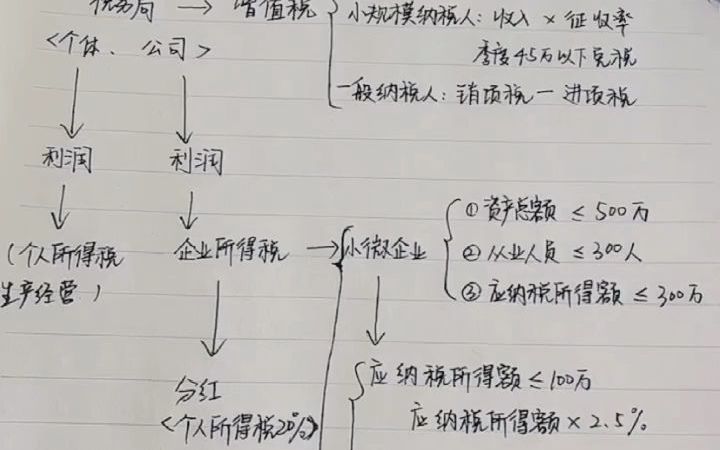 税务局 → 增值税 { 小规模纳税人: 收入 × 征收率
<个体、公司>
季度45万以下免税
一般纳税人: 销项税 - 进项税
利润 利润
(个人所得税 企业所得税 → 小微企业
生产经营)
① 资产总额 ≤ 500万
② 从业人员 ≤ 300人
③ 应纳税所得额 ≤ 300万
分红
<个人所得税20%>
应纳税所得额 ≤ 100万
应纳税所得额 × 2.5%